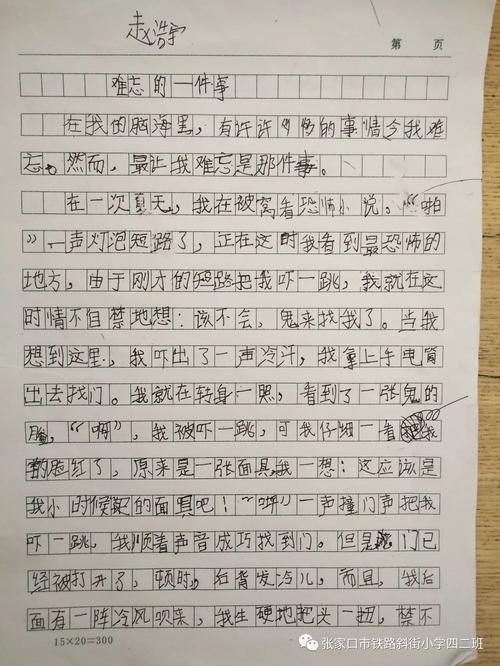 赵浩宇
第 页
难忘的一件事
在我的脑海里，有许许多多的事情令我难
忘。然而，最让我难忘是那件事。
在一次夏天，我在被窝看恐怖小说。“啪
”一声灯泡短路了，正在这时我看到最恐怖的
地方，由于刚才的短路把我吓一跳，我就在这
时情不自禁地想：该不会，鬼来找我了。当我
想到这里，我吓出了一声冷汗，我拿上手电筒
出去找门。我就在转身一照，看到了一张鬼的
脸，“啊”，我被吓一跳，可我仔细一看我
的脸红了，原来是一张面具，我一想：这应该是
我小时候的面具吧！“”一声撞门声把我
吓一跳，我顺着声音成巧找到门。但是门已
经被打开了，顿时，后背发冷儿，而且，我后
面有一阵冷风吹来，我生硬地把头一扭，禁不
15×20=300
张家口市铁路斜街小学四二班